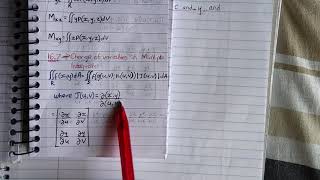 Mxz = ∫∫ yρ(x,y,z)dV
Mxy = ∫∫ zρ(x,y,z)dV
Change of variables in Multiple
Integrals
∫∫ f(x,y)dA = ∫∫ f(g(u,v), h(u,v)) |J(u,v)| dA
R
where J(u,v) = ∂(x,y)
∂(u,v)
= ∂x ∂x
∂u ∂v
∂y ∂y
∂u ∂v